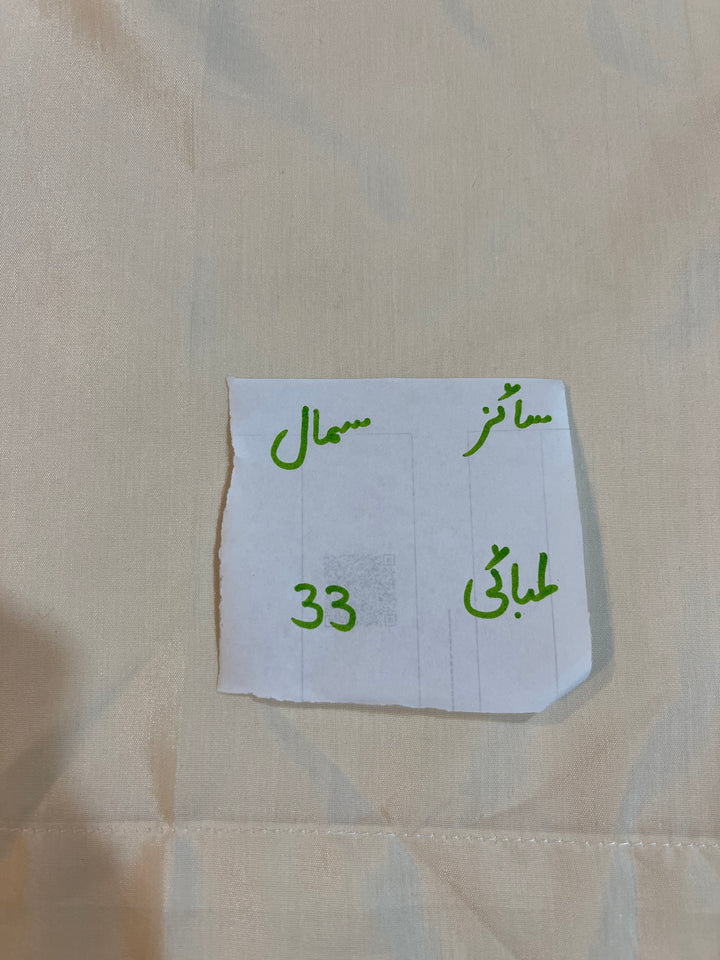 سائز سمال
لمبائی 33